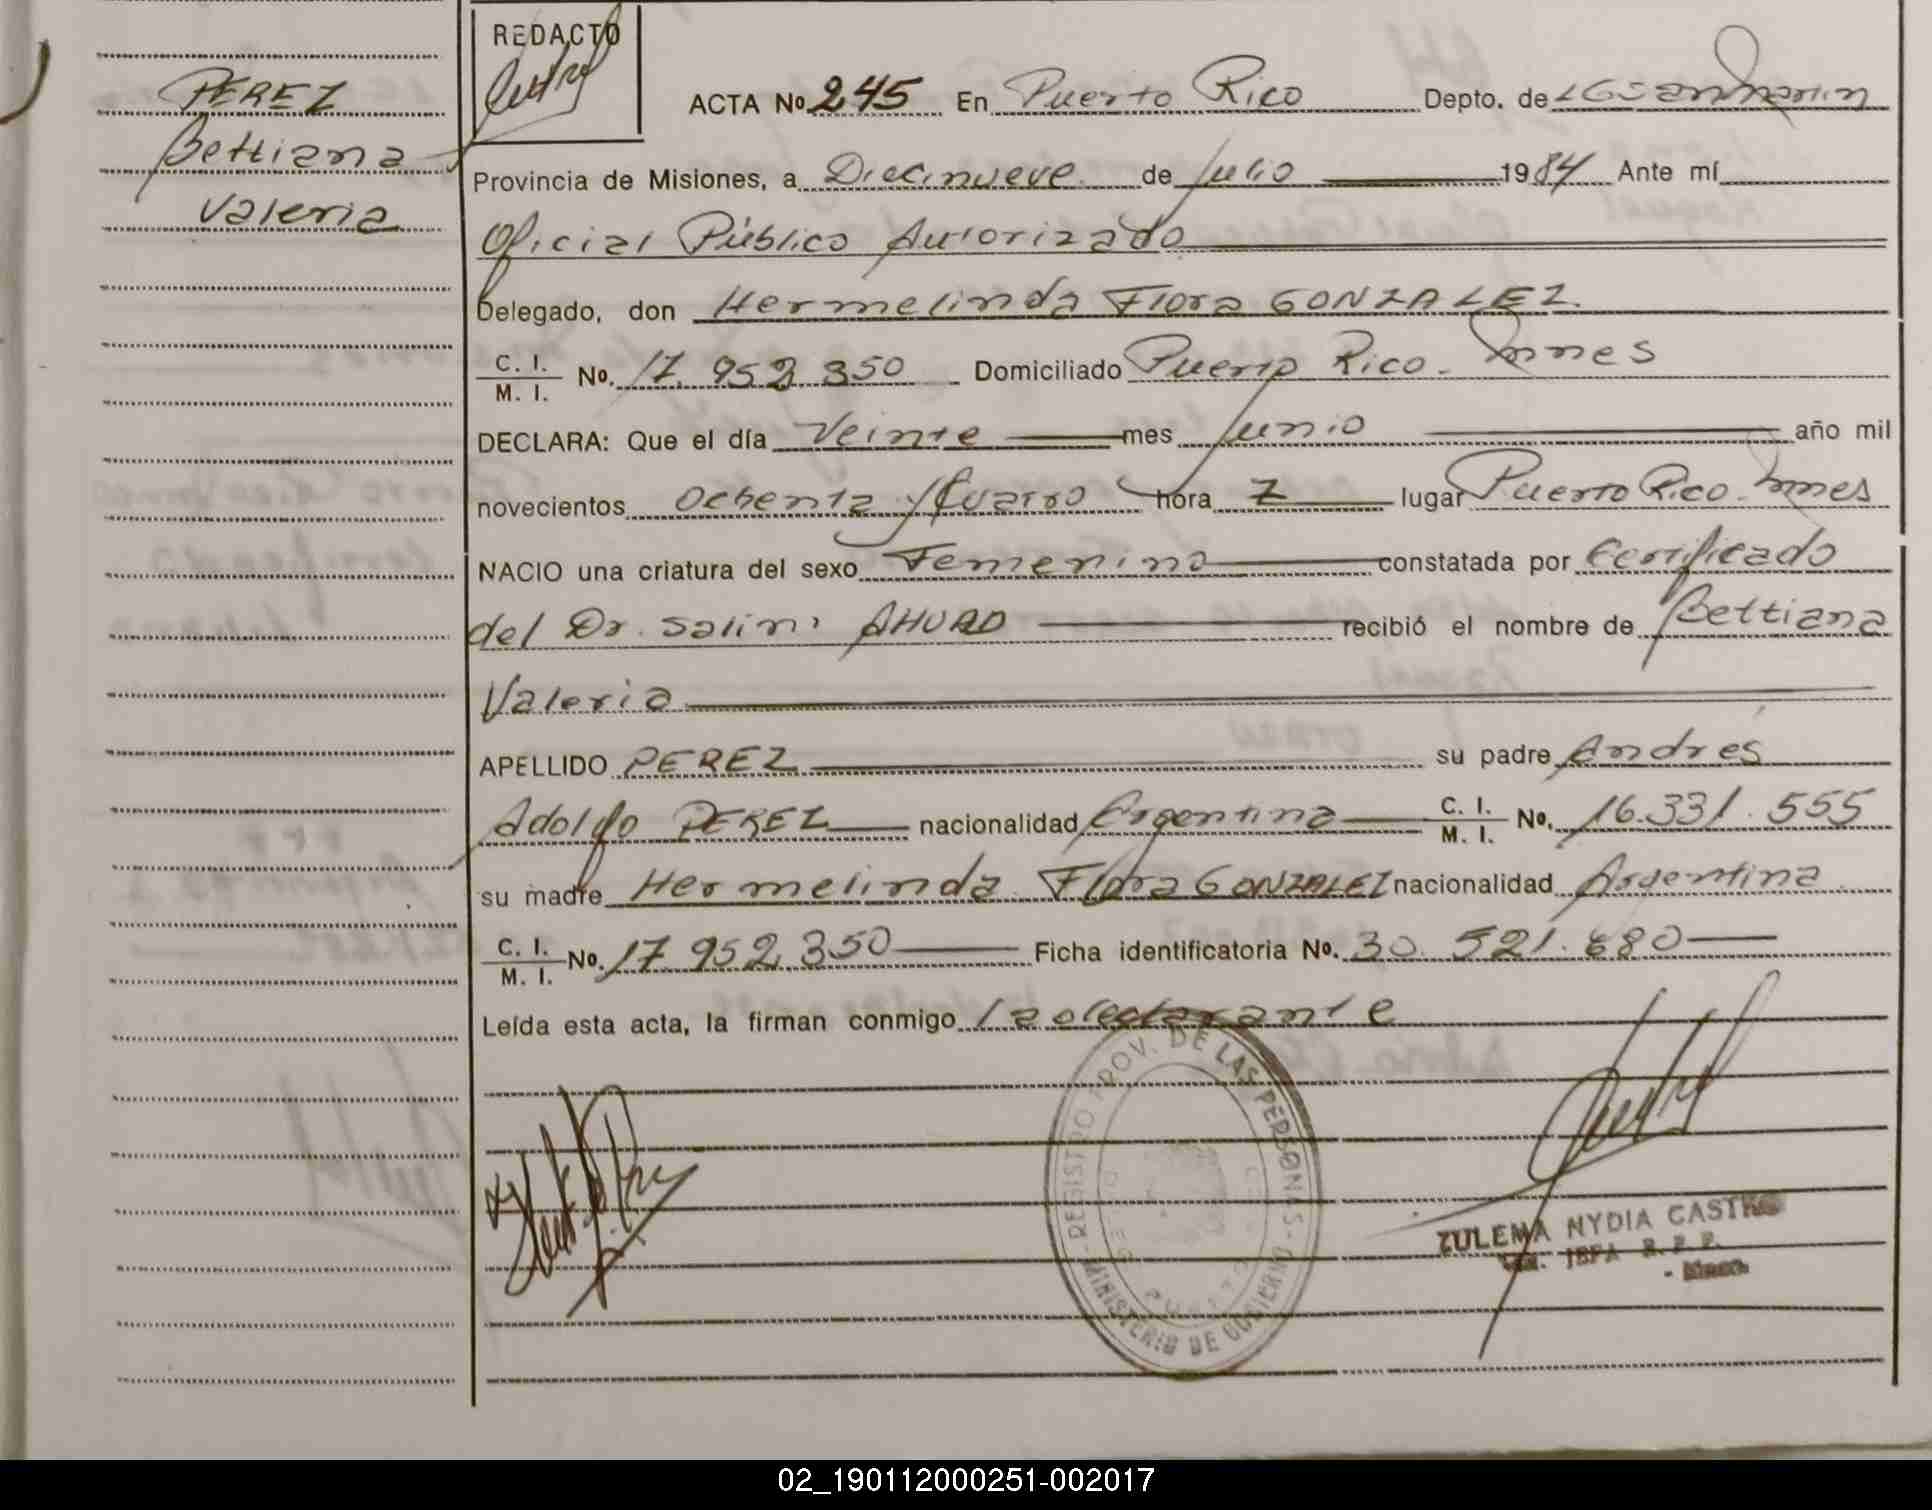 REDACTO
PEREZ
Bettiana
Valeria
ACTA Nº 245 En Puerto Rico Depto. de LGSanmartin
Provincia de Misiones, a Diecinueve de Julio 1984 Ante mí
Oficial Público Autorizado
Delegado, don Hermelinda Flora GONZALEZ.
C. I.
M. I. Nº. 17.952.350 Domiciliado Puerto Rico - Mnes
DECLARA: Que el día Veinte mes Junio año mil
novecientos Ochenta y Cuatro hora 7 lugar Puerto Rico - Mnes
NACIO una criatura del sexo Femenino constatada por Certificado
del Dr. Salim AHUAD recibió el nombre de Bettiana
Valeria
APELLIDO PEREZ su padre Andrés
Adolfo PEREZ nacionalidad Argentina C. I.
M. I. Nº. 16.331.555
su madre Hermelinda Flora GONZALEZ nacionalidad Argentina
C. I.
M. I. Nº. 17.952.350 Ficha identificatoria Nº. 30.521.680
Leída esta acta, la firman conmigo la declarante
REGISTRO PROV. DE LAS PERSONAS - MINISTERIO DE GOBIERNO
ZULEMA NYDIA CASTRO
JEFA R. P. P.
02_190112000251-002017